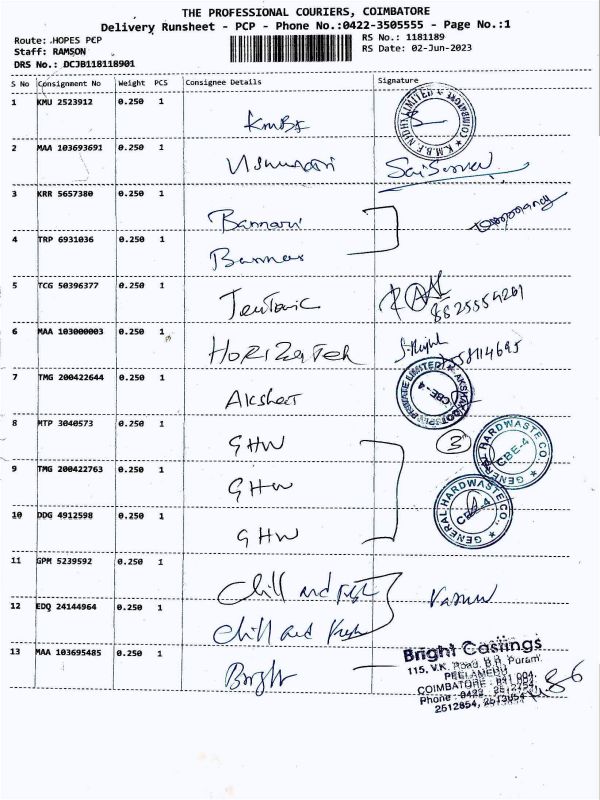 THE PROFESSIONAL COURIERS, COIMBATORE
Delivery Runsheet - PCP - Phone No.:0422-3505555 - Page No.:1
Route: HOPES PCP
Staff: RAMSON
DRS No.: DCJB118118901
RS No.: 1181189
RS Date: 02-Jun-2023
S No Consignment No Weight PCS Consignee Details Signature
1 KMU 2523912 0.250 1 KMBF
K.M.B.F. NIDHI LIMITED * COIMBATORE *
2 MAA 103693691 0.250 1
3 KRR 5657380 0.250 1 Bannari
4 TRP 6931036 0.250 1
5 TCG 50396377 0.250 1 Teutonic
8825554201
6 MAA 103000003 0.250 1
7 TMG 200422644 0.250 1 Akshat
PRIVATE LIMITED
CBE-4
8 MTP 3040573 0.250 1 GHW 3
GENERAL HARDWASTE CO.,
CBE-4
9 TMG 200422763 0.250 1 GHW
10 DDG 4912598 0.250 1 GHW
GENERAL HARDWASTE CO.,
CBE-4
11 GPM 5239592 0.250 1 Chill and
12 EDQ 24144964 0.250 1 Chill and
13 MAA 103695485 0.250 1 Bright
Bright Castings
115, V.K. Road, B.R. Puram
PEELAMEDU
COIMBATORE - 641 004.
Phone: 0422
2512854,